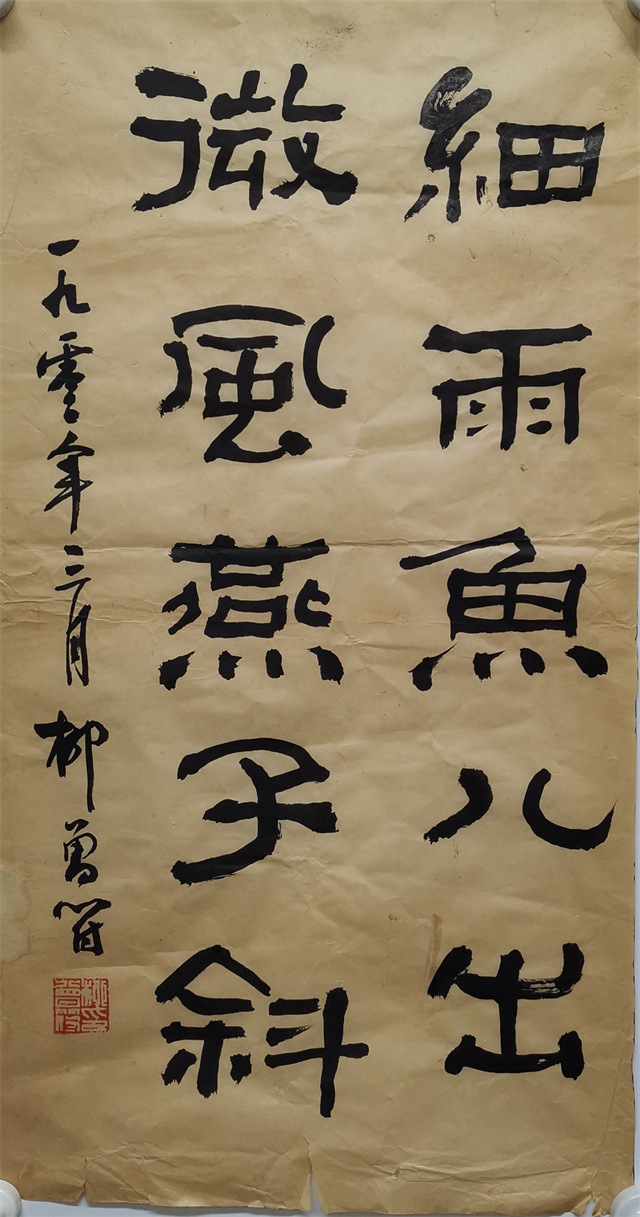 細雨魚儿出
微風燕子斜
一九零年三月 柳曾符